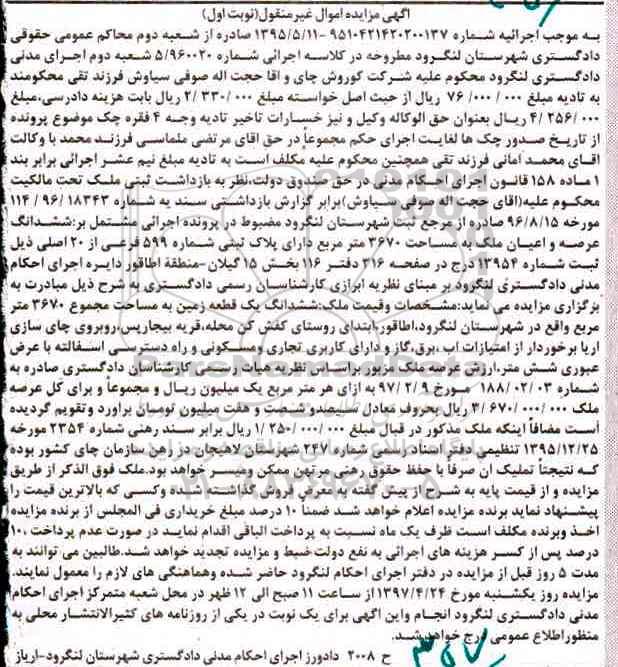 آگهی مزایده اموال غیرمنقول(نوبت اول)
به موجب اجرائیه شماره ۹۵۱۰۴۲۱۴۲۰۲۰۰۱۳۷ -۱۳۹۵/۵/۱۱ صادره از شعبه دوم محاکم عمومی حقوقی
دادگستری شهرستان لنگرود مطروحه در کلاسه اجرائی شماره ۵/۹۶۰۰۲۰ شعبه دوم اجرای مدنی
دادگستری لنگرود محکوم علیه شرکت کوروش چای و اقا حجت اله صوفی سیاوش فرزند تقی محکومند
به تادیه مبلغ ۷۶/۰۰۰/۰۰۰ ریال از حیث اصل خواسته مبلغ ۲/۳۳۰/۰۰۰ ریال بابت هزینه دادرسی،مبلغ
۴/۲۵۶/۰۰۰ ریال بعنوان حق الوکاله وکیل و نیز خسارات تاخیر تادیه وجه ۴ فقره چک موضوع پرونده
از تاریخ صدور چک ها لغایت اجرای حکم مجموعاً در حق اقای مرتضی ملماسی فرزند محمد با وکالت
اقای محمد امانی فرزند تقی همچنین محکوم علیه مکلف است به تادیه مبلغ نیم عشر اجرائی برابر بند
۱ ماده ۱۵۸ قانون اجرای احکام مدنی در حق صندوق دولت،نظر به بازداشت ثبتی ملک تحت مالکیت
محکوم علیه(اقای حجت اله صوفی سیاوش)برابر گزارش بازداشتی سند به شماره ۱۱۴/۹۶/۱۸۳۴۳
مورخه ۹۶/۸/۱۵ صادره از مرجع ثبت شهرستان لنگرود مضبوط در پرونده اجرائی مشتمل بر:ششدانگ
عرصه و اعیان ملک به مساحت ۳۶۷۰ متر مربع دارای پلاک ثبتی شماره ۵۹۹ فرعی از ۲۰ اصلی ذیل
ثبت شماره ۱۳۹۵۴ درج در صفحه ۳۱۶ دفتر ۱۱۶ بخش ۱۵ گیلان-منطقه اطاقور دایره اجرای احکام
مدنی دادگستری لنگرود بر مبنای نظریه ابرازی کارشناسان رسمی دادگستری به شرح ذیل مبادرت به
برگزاری مزایده می نماید:مشخصات وقیمت ملک:ششدانگ یک قطعه زمین به مساحت مجموع ۳۶۷۰ متر
مربع واقع در شهرستان لنگرود،اطاقور،ابتدای روستای کفش کن محله،قریه بیجارپس،روبروی چای سازی
اریا برخوردار از امتیازات اب ،برق،گاز و دارای کاربری تجاری ومسکونی و راه دسترسی اسفالته با عرض
عبوری شش متر،ارزش عرصه ملک مزبور براساس نظریه هیات رسمی کارشناسان دادگستری صادره به
شماره ۱۸۸/۰۲/۰۳ مورخ ۹۷/۲/۹ به ازای هر متر مربع یک میلیون ریال و مجموعاً و برای کل عرصه
ملک ۳/۶۷۰/۰۰۰/۰۰۰ ریال بحروف معادل سیصدو شصت و هفت میلیون تومان براورد و تقویم گردیده
است مضافاً اینکه ملک مذکور در قبال مبلغ ۱/۲۵۰/۰۰۰/۰۰۰ ریال برابر سند رهنی شماره ۲۳۵۴ مورخه
۱۳۹۵/۱۲/۲۵ تنظیمی دفتر اسناد رسمی شماره ۲۴۷ شهرستان لاهیجان در رهن سازمان چای کشور بوده
که نتیجتاً تملیک ان صرفا با حفظ حقوق رهنی مرتهن ممکن ومیسر خواهد بود.ملک فوق الذکر از طریق
مزایده و از قیمت پایه به شرح از پیش گفته به معرض فروش گذاشته شده وکسی که بالاترین قیمت را
پیشنهاد نماید برنده مزایده اعلام خواهد شد ضمنا ۱۰ درصد مبلغ خریداری فی المجلس از برنده مزایده
اخذ وبرنده مکلف است ظرف یک ماه نسبت به پرداخت الباقی اقدام نماید در صورت عدم پرداخت ،۱۰
درصد پس از کسر هزینه های اجرائی به نفع دولت ضبط و مزایده تجدید خواهد شد.طالبین می توانند به
مدت ۵ روز قبل از مزایده در دفتر اجرای احکام لنگرود حاضر شده وهماهنگی های لازم را معمول نمایند.
مزایده روز یکشنبه مورخ ۱۳۹۷/۴/۲۴ از ساعت ۱۱ صبح الی ۱۲ ظهر در محل شعبه متمرکز اجرای احکام
مدنی دادگستری لنگرود انجام واین آگهی برای یک نوبت در یکی از روزنامه های کثیرالانتشار محلی به
منظوراطلاع عمومی درج خواهدشد.
ح ۲۰۰۸ دادورز اجرای احکام مدنی دادگستری شهرستان لنگرود-ارباز